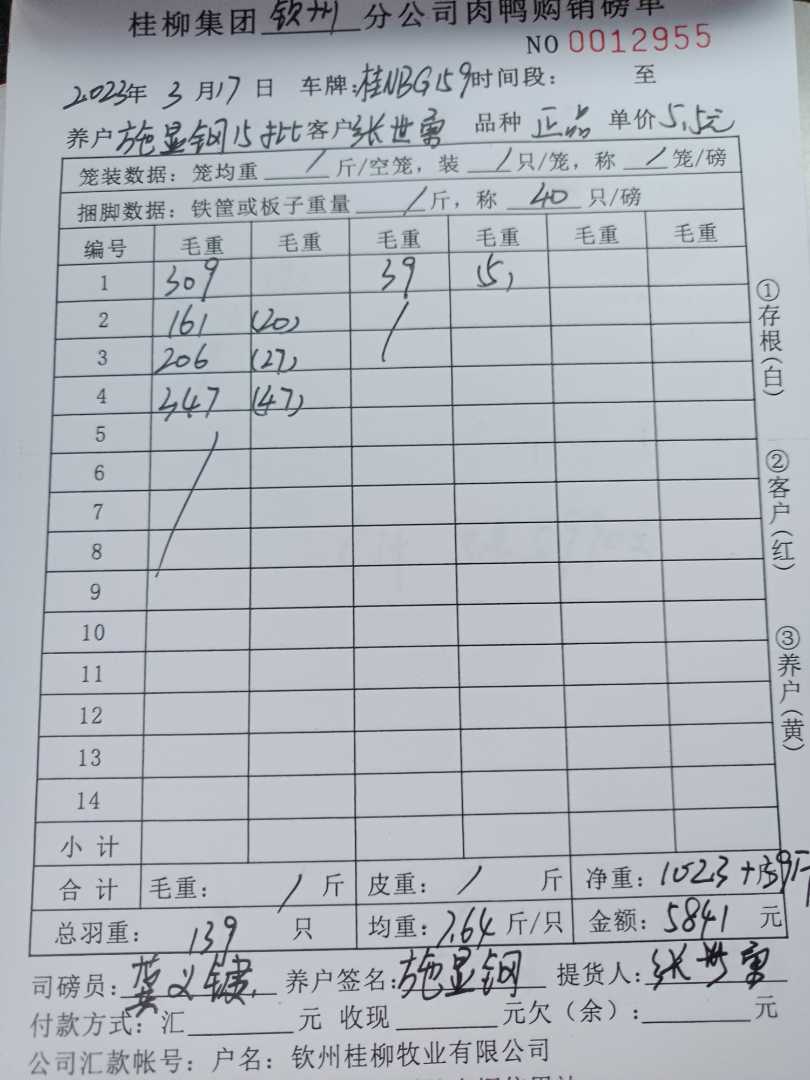 桂柳集团 钦州 分公司肉鸭购销磅单
NO 0012955
2023年 3月17日 车牌:桂NBG159 时间段: 至
养户 施显钢15批 客户 张世寓 品种 正品 单价 5.5元
笼装数据:笼均重 / 斤/空笼,装 / 只/笼,称 / 笼/磅
捆脚数据:铁筐或板子重量 / 斤,称 40 只/磅
编号 毛重 毛重 毛重 毛重 毛重 毛重
1 309 39 (5)
2 161 (20) /
3 206 (27)
4 347 (47)
5 /
6
7
8
9
10
11
12
13
14
小计
合计 毛重: / 斤 皮重: / 斤 净重: 1023 + 39斤
总羽重: 139 只 均重: 7.64 斤/只 金额: 5841 元
司磅员: 养户签名: 施显钢 提货人: 张世寓
付款方式:汇 元 收现 元欠(余): 元
公司汇款帐号:户名:钦州桂柳牧业有限公司
①存根(白)
②客户(红)
③养户(黄)